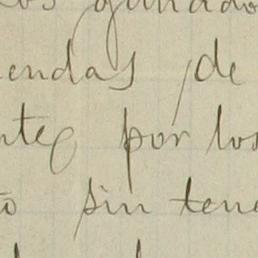 os ganado
endas, de
ntes por los
o sin tene